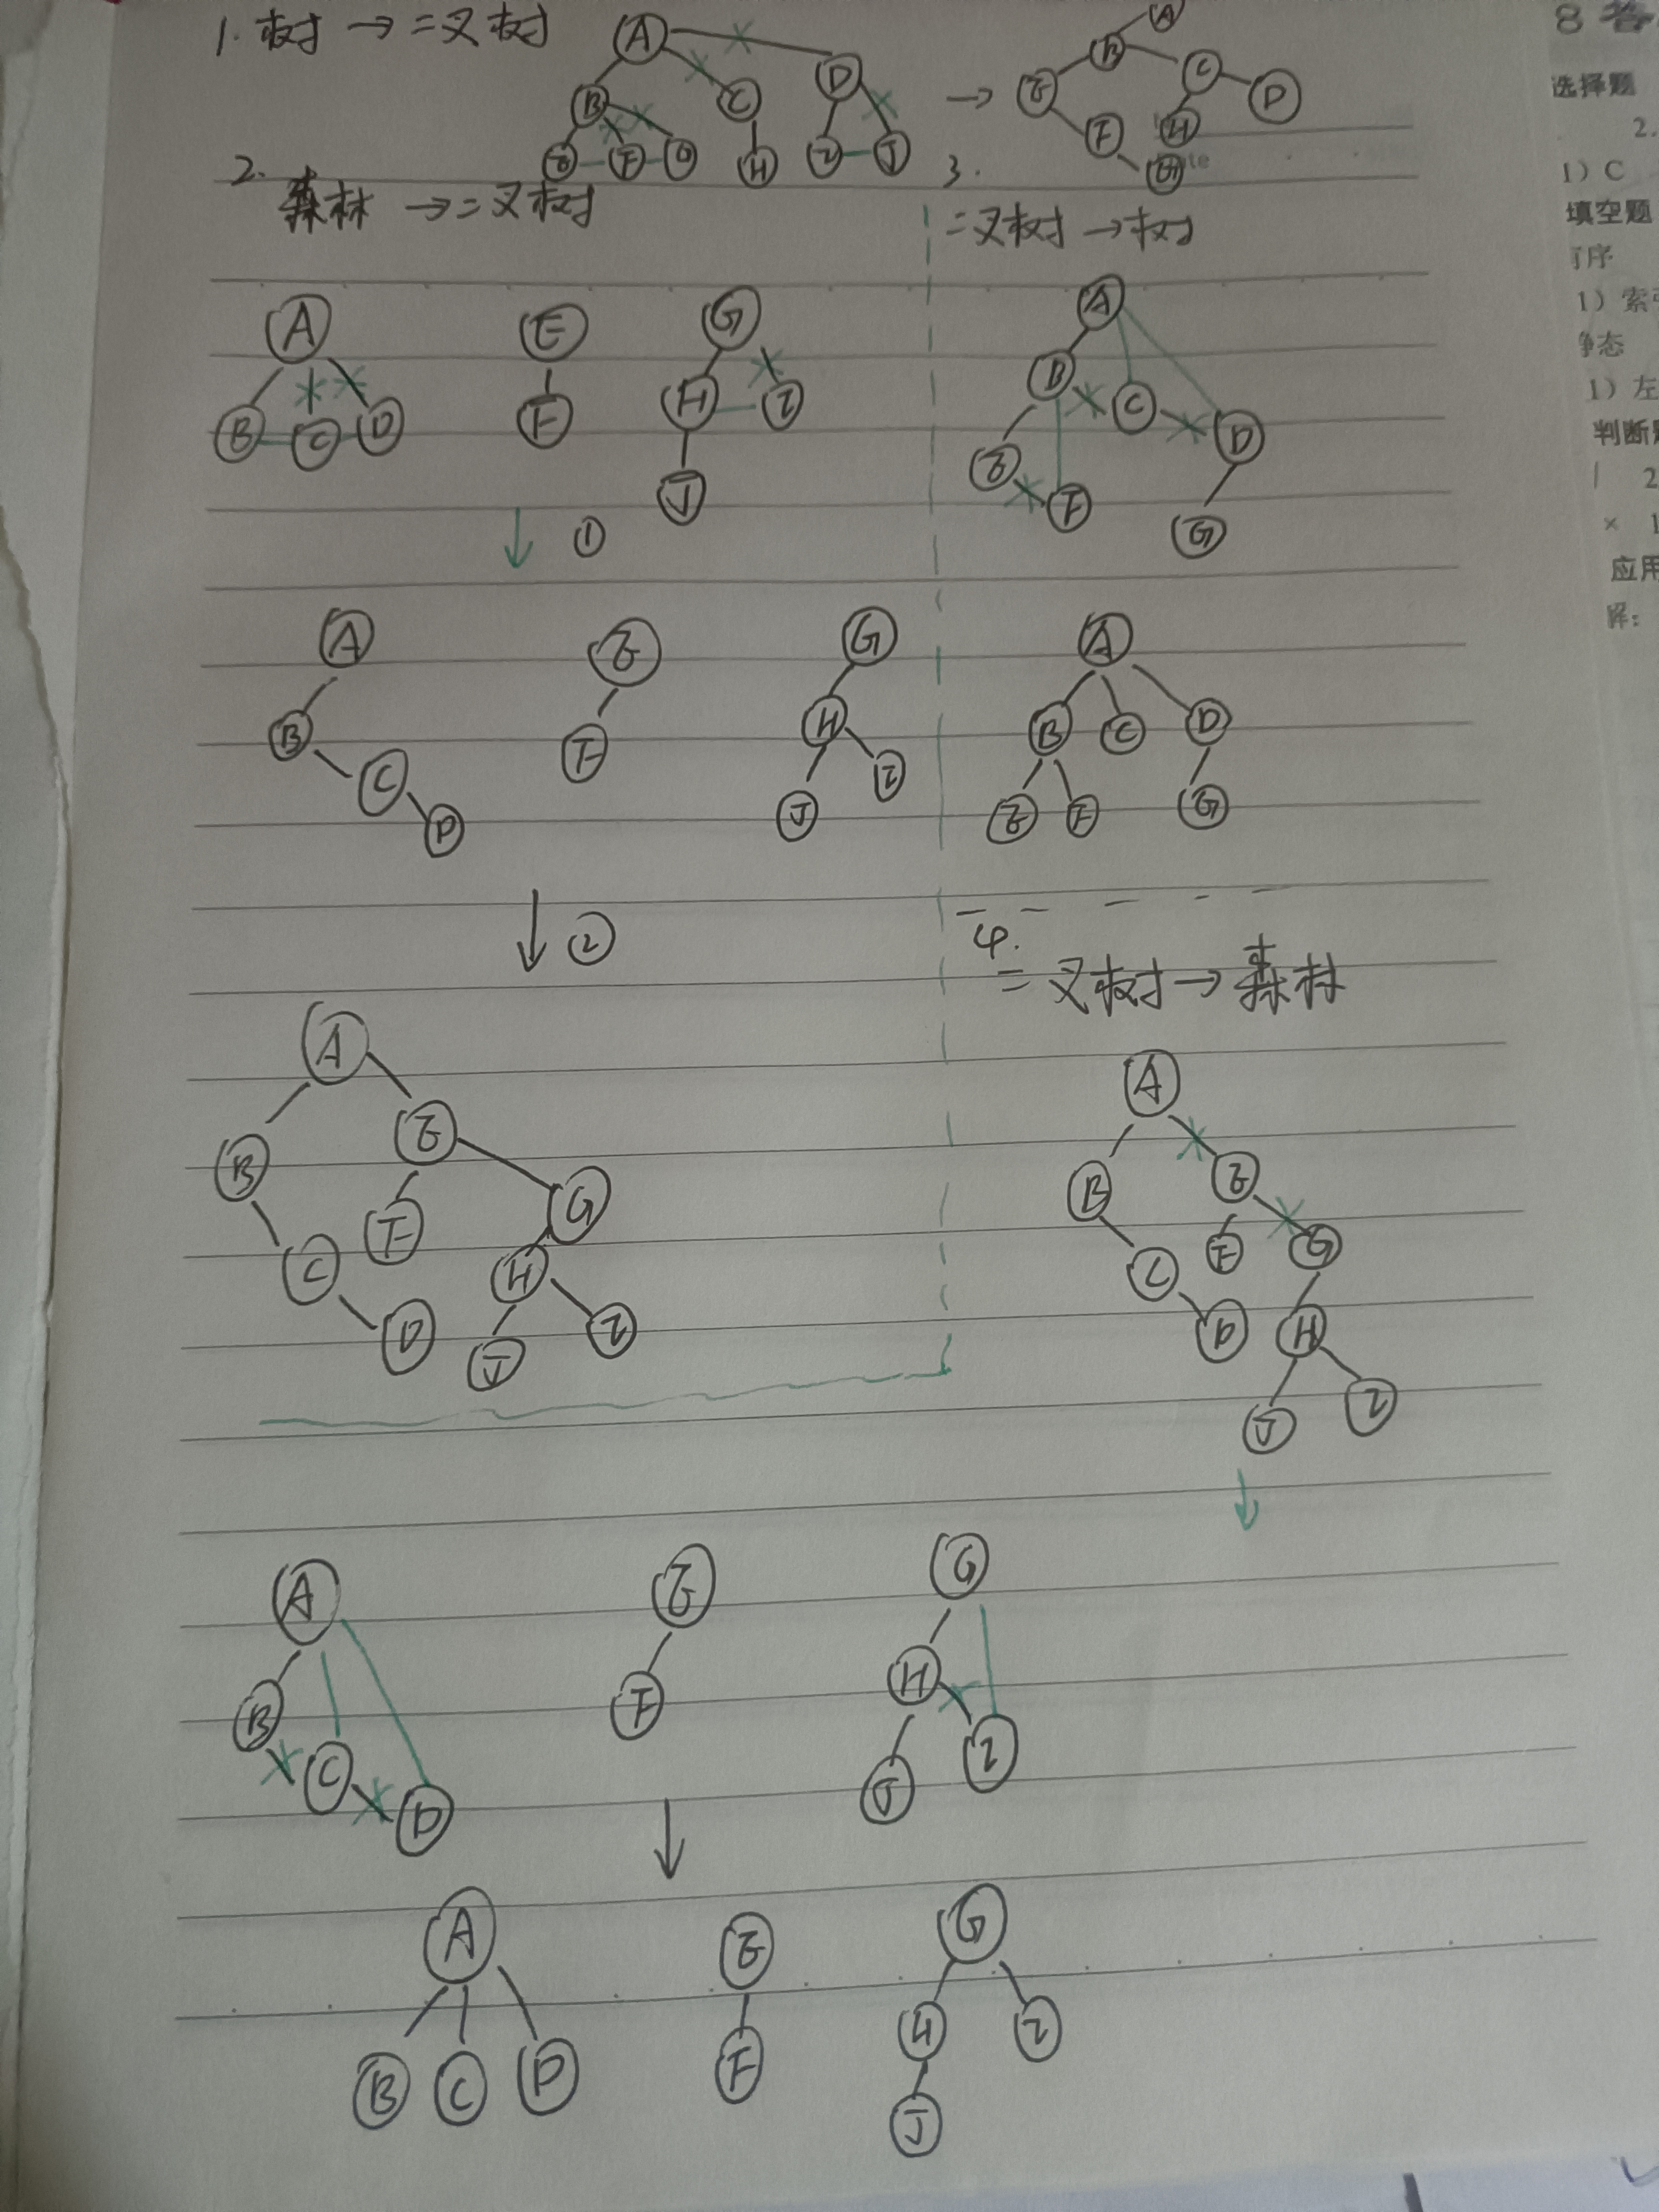 1. 树 → 二叉树
A
B C D
E F G H I J
→
A
B
E C D
F H
G
2. 森林 → 二叉树
3. 二叉树 → 树
A E G
B C D F H I
J
①
A E G
B F H
C J I
D
②
A
B E
C F G
D H
J I
A
B C
E D
F G
A
B C D
E F G
4. 二叉树 → 森林
A
B E
C F G
D H
J I
A E G
B F H
C J I
D
A E G
B C D F H I
J
8 答
选择题
2.
1) C
填空题
序
1) 索
静态
1) 左
判断
2
× 1
应用
解: